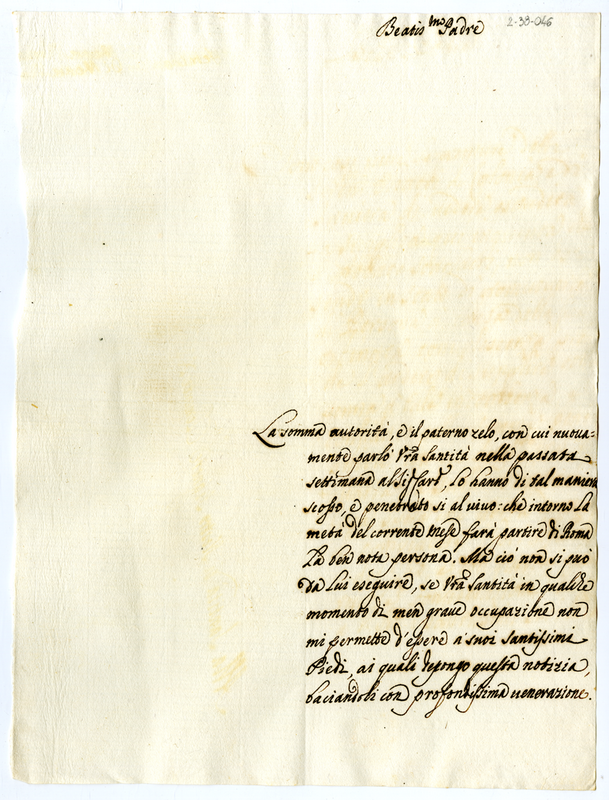 Beatis.mo Padre
2-38-046
La somma autorità, e il paterno zelo, con cui nuova=
mente parlò Vra Santità nella passata
settimana al Sig.r Card., lo hanno di tal maniera
scosso, e penetrato si al vivo: che intorno la
metà del corrente Mese farà partire di Roma
La ben nota persona. Ma ciò non si può
da lui eseguire, se Vra Santità in qualche
momento di men grave occupazione non
mi permette d'essere a' suoi Santissimi
Piedi, ai quali depongo questa notizia,
baciandoli con profondissima venerazione.